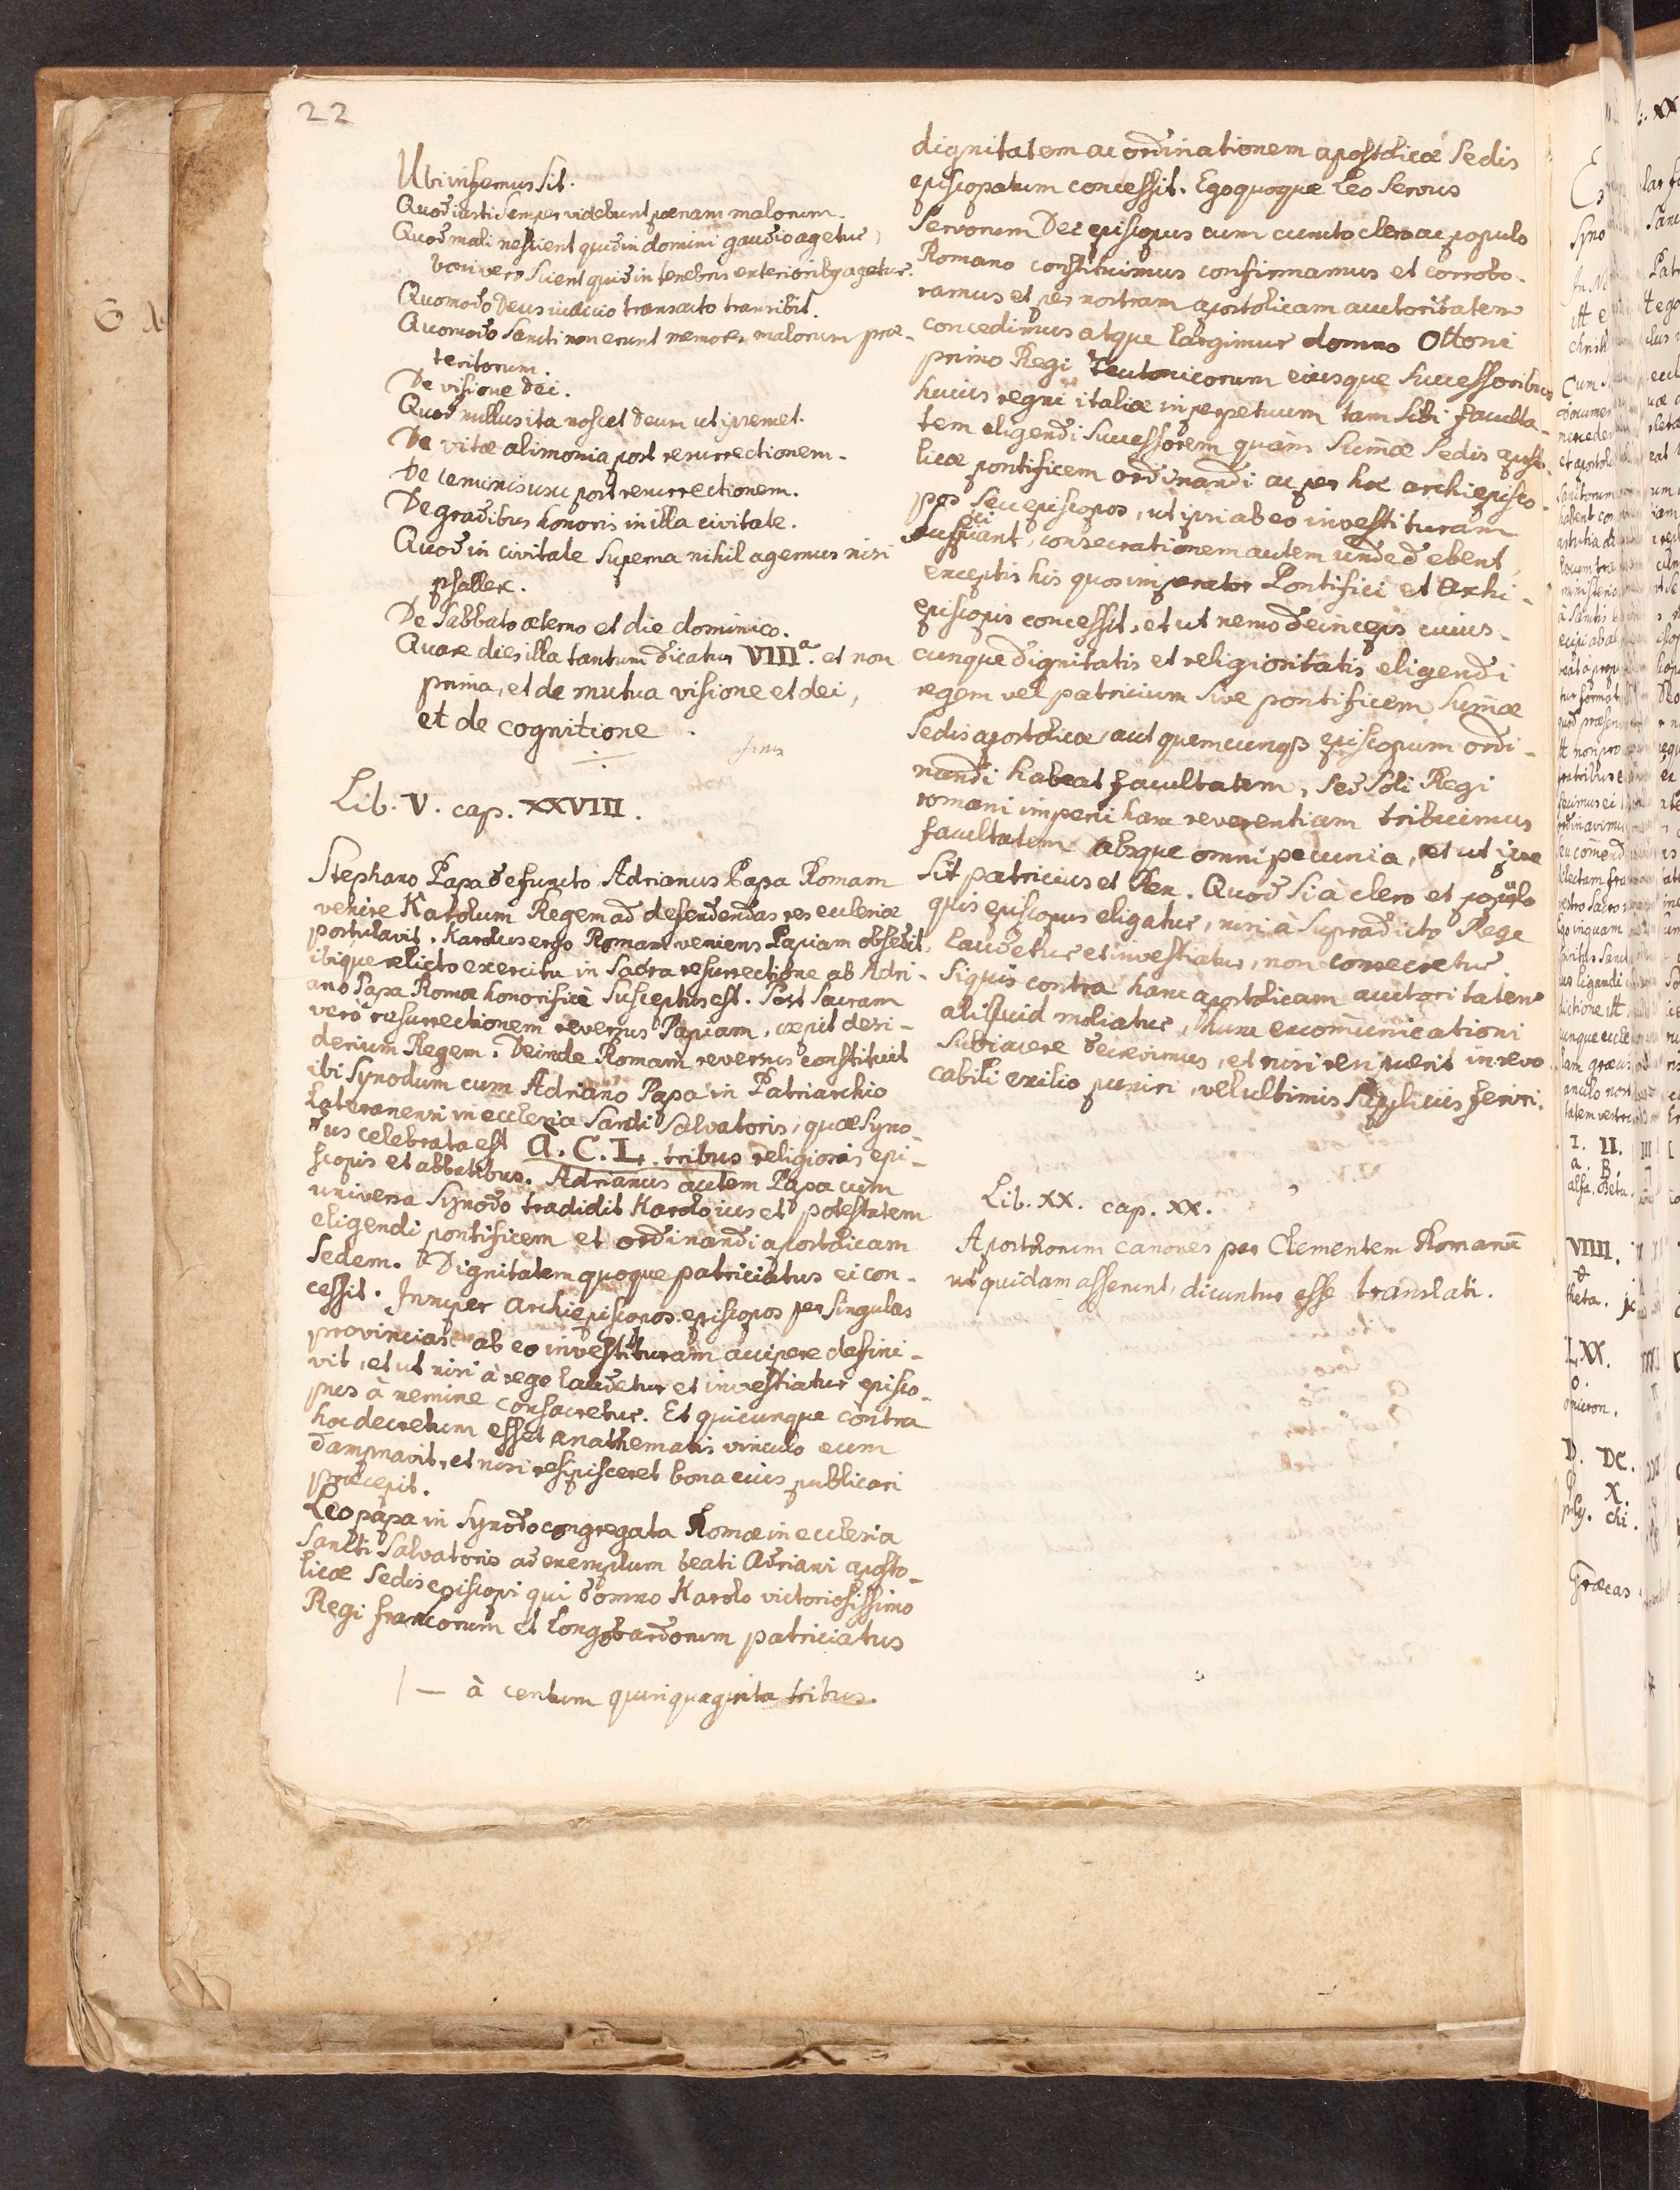 22
Ubi infernus sit.
Quod iusti semper videbunt pœnam malorum.
Quod mali nescient quid in domini gaudio agetur,
boni vero scient quid in tenebris exteriorib9 agetur.
Quomodo Deus iudicio transacto transibit.
Quomodo sancti non erunt memores malorum præ-
teritorum.
De visione dei.
Quod nullus ita noscet deum ut ipsemet.
De vitæ alimonia post resurrectionem.
De usu post resurrectionem.
De gradibus honoris in illa civitate.
Quod in civitate superna nihil agemus nisi
psallere.
De sabbato æterno et die dominico.
Quare dies illa tantum dicatur VIIIa. et non
prima, et de mutua visione et dei,
et de cognitione.
finis
Lib. V. cap. XXVIII.
Stephano Papa defuncto Adrianus Papa Romam
venire Karolum Regem ad defendendas res ecclesiæ
postulavit. Karolus ergo Romam veniens Papiam obsedit,
ibique relicto exercitu in sacra resurrectione ab Adri-
ano Papa Romæ honorificè susceptus est. Post sacram
verò resurrectionem reversus Papiam, cœpit desi-
derium Regem. Deinde Romam reversus constituit
ibi synodum cum Adriano Papa in Patriarchio
Lateranensi in ecclesia Sancti Salvatoris, quæ syno-
dus celebrata est a. C. L. tribus religiosis epi-
scopis et abbatibus. Adrianus autem Papa cum
universa synodo tradidit Karolo ius et potestatem
eligendi pontificem et ordinandi apostolicam
sedem. Dignitatem quoque patriciatus ei con-
cessit. Insuper archiepiscopos episcopos per singulas
provincias ab eo investituram accipere deffini-
vit, et ut nisi à rege laudetur et investiatur episco-
pus à nemine consacretur. Et quicunque contra
hoc decretum esset anathematis vinculo eum
dampnavit, et nisi resipisceret bona eius publicari
præcepit.
Leo papa in synodo congregata Romæ in ecclesia
Sancti Salvatoris ad exemplum beati Adriani aposto-
licæ sedis episcopi qui domno Karolo victoriosissimo
Regi francorum et Longobardorum patriciatus
| — à centum quinquaginta tribus.
dignitatem ac ordinationem apostolicæ sedis
episcopatum concessit. Ego quoque Leo servus
servorum Dei episcopus cum cuncto clero ac populo
Romano constituimus confirmamus et corrobo-
ramus et per nostram apostolicam auctoritatem
concedimus atque largimur domno Ottoni
primo Regi Teutonicorum eiusque successoribus
huius regni italiæ in perpetuum tam sibi faculta-
tem eligendi successorem quàm sum̄æ sedis aposto-
licæ pontificem ordinandi ac per hoc archiepisco-
pos seu episcopos, ut ipsi ab eo investituram
suscipiant, consecrationem autem unde debent,
exceptis his quos imperator Pontifici et Archi-
episcopis concessit, et ut nemo deinceps cuius-
cunque dignitatis et religiositatis eligendi
regem vel patricium sive pontificem sum̄æ
sedis apostolicæ, aut quemcunq3 episcopum ordi-
nandi habeat facultatem, sed soli Regi
romani imperii hanc reverentiam tribuimus
facultatem absque omni pecunia, et ut ipse
sit patricius et Rex. Quod si à clero et populo
quis episcopus eligatur, nisi à supradicto Rege
laudetur et investiatur, non consecretur.
Siquis contra hanc apostolicam auctoritatem
aliquid moliatur, hunc excom̄unicationi
subiacere decrevimus, et nisi resipuerit in revo
cabili exilio puniri, vel ultimis suppliciis feriri.
Lib. XX. cap. XX.
Apostolorum canones per Clementem Romanū
ut quidam asserunt, dicuntur esse translati.